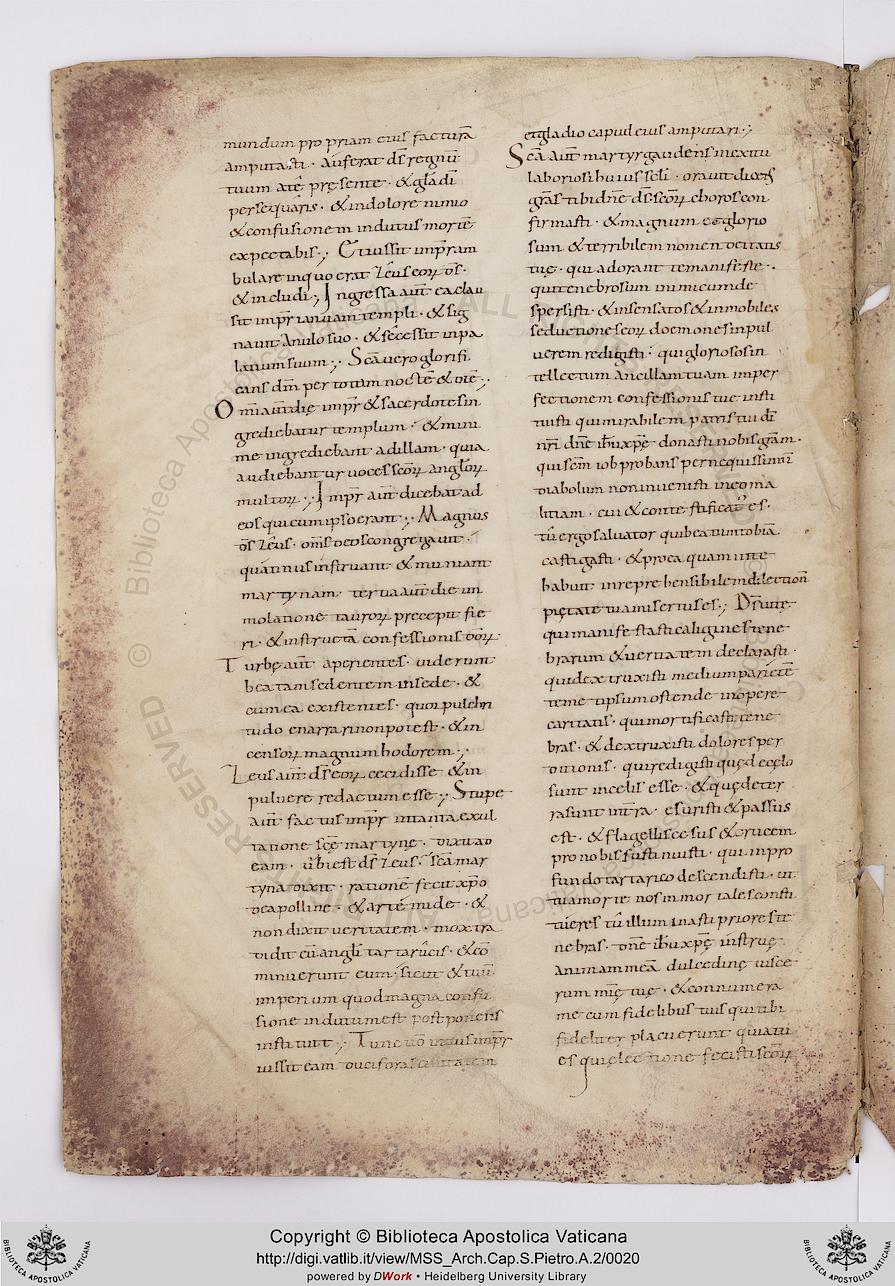 mundum propriam eius facturā
amputasti · auferat ds̄ regnū
tuum a te presente · & gladii
persequaris · & in dolore nimio
& confusionem indutus mortē
expectabis ; Et iussit imp̄r am
bulare in quo erat Zeus eoꝝ ds̄ ·
& includi ; Ingressa aūt ea clau
sit imp̄r ianuam templi · & sig
navit anulo suo · & secessit in pa
latium suum ; Sc̄a vero glorifi
cans dm̄ per totam noctē & diē ;
Omni aūt die imp̄r & sacerdotes in
grediebatur templum · & mini
me ingrediebant ad illam · quia
audiebantur voces sc̄oꝝ anglōꝝ
multoꝝ ; Imp̄r aūt dicebat ad
eos qui cum ipso erant ; Magnus
ds̄ Zeus · oms̄ deos congregavit ·
quatinus instruant & muniant
martynam · tertia aūt die im
molatione tauroꝝ precepit fie
ri · & instructā confessionis
Turbe aūt aperientes · viderunt
beatam sedentem in sede · &
cum ea existentes · quoꝝ pulchri
tudo enarrari non potest · & in
censoꝝ magnum hodorem ;
Zeus aūt ds̄ eoꝝ cecidisse & in
pulvere redactum esse ; Stupe
aūt factus imp̄r
ratione sc̄e martyne · dixit ad
eam · ubi est ds̄ Zeus · sc̄a mar
tyna dixit · rationē fecit xp̄o
de apolline · & arte mide · &
non dixit veritatem · mox tra
didit eū angl̄i tartarucis · & cō
minuerunt eum · sicut & tuū
imperium quod magna confu
sione indutum est postponens
instituit ; Tunc
iussit eam duci foras civitatem
et gladio capud eius amputari ;
Sc̄a aūt martyr gaudens in exitu
laboriosi huius seli · oravit dicens
grās tibi dn̄e ds̄ sc̄oꝝ choros con
firmasti · & magnum et glorio
sum & terribilem nomen deitatis
tue · qui adorant te manifeste ·
qui tenebrosum inimicum de
spersisti · & insensatos & inmobiles
seductiones eoꝝ doemones in pul
verem redigisti · qui gloriosos in
tellectum ancillam tuam imper
fectionem confessionis tue insti
tuisti qui mirabilem patris tui di
nr̄i dn̄e ih̄u xp̄e donasti nobis grām ·
qui sc̄m iob probans per nequissimū
diabolum non invenisti in eo ma
litiam · cui & contestificat es ·
tū ergo salvator qui beatum tobiā
castigasti · & proca quam in te
habuit inreprehensibilem dilection
pietate tua misertus es ;
qui manifestasti caligines tene
brarum & veritatem declarasti ·
qui dextruxisti medium parietē
temetipsum ostende in opere
caritatis · qui mortificasti tene
bras · & dextruxisti dolores per
ditionis · qui redigisti que de celo
sunt in celis esse · & que deter
rasunt int̄ra · esuristi & passus
est · & flagellis cesus & crucem
pro nobis sustinuisti · qui in pro
fundo tartarico descendisti · ut
tua morte nos inmortales consti
tueres tū illuminasti priores te
nebras · dn̄e ih̄u xp̄e instrue
animam meā dulcedine visce
rum mīe tue · & connumera
me cum fidelibus tuis qui tibi
fideliter placuerunt quia tu
es qui electione fecisti sc̄oꝝ
© Biblioteca Apostolica Vaticana
ALL RIGHTS RESERVED
Copyright © Biblioteca Apostolica Vaticana
http://digi.vatlib.it/view/MSS_Arch.Cap.S.Pietro.A.2/0020
powered by DWork • Heidelberg University Library
BIBLIOTECA APOSTOLICA VATICANA
BIBLIOTECA APOSTOLICA VATICANA